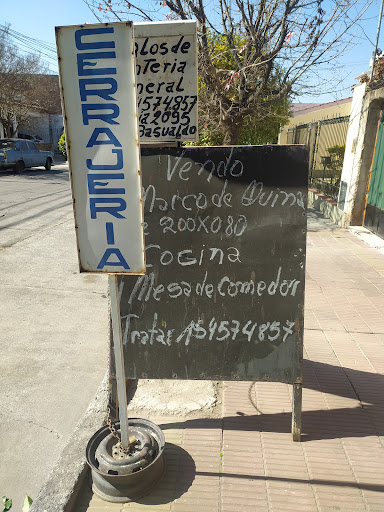 CERRAJERIA
alos de
nteria
neral
1574857
2095
Basualdo
Vendo
Marco de Quina
200X080
Cocina
1 Mesa de Comedor
Tratar 154574857